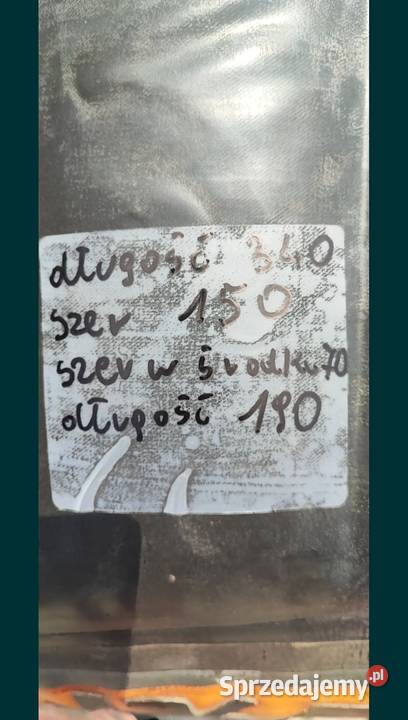 długość 340
szer 150
szer w środku 70
długość 190
Sprzedajemy.pl